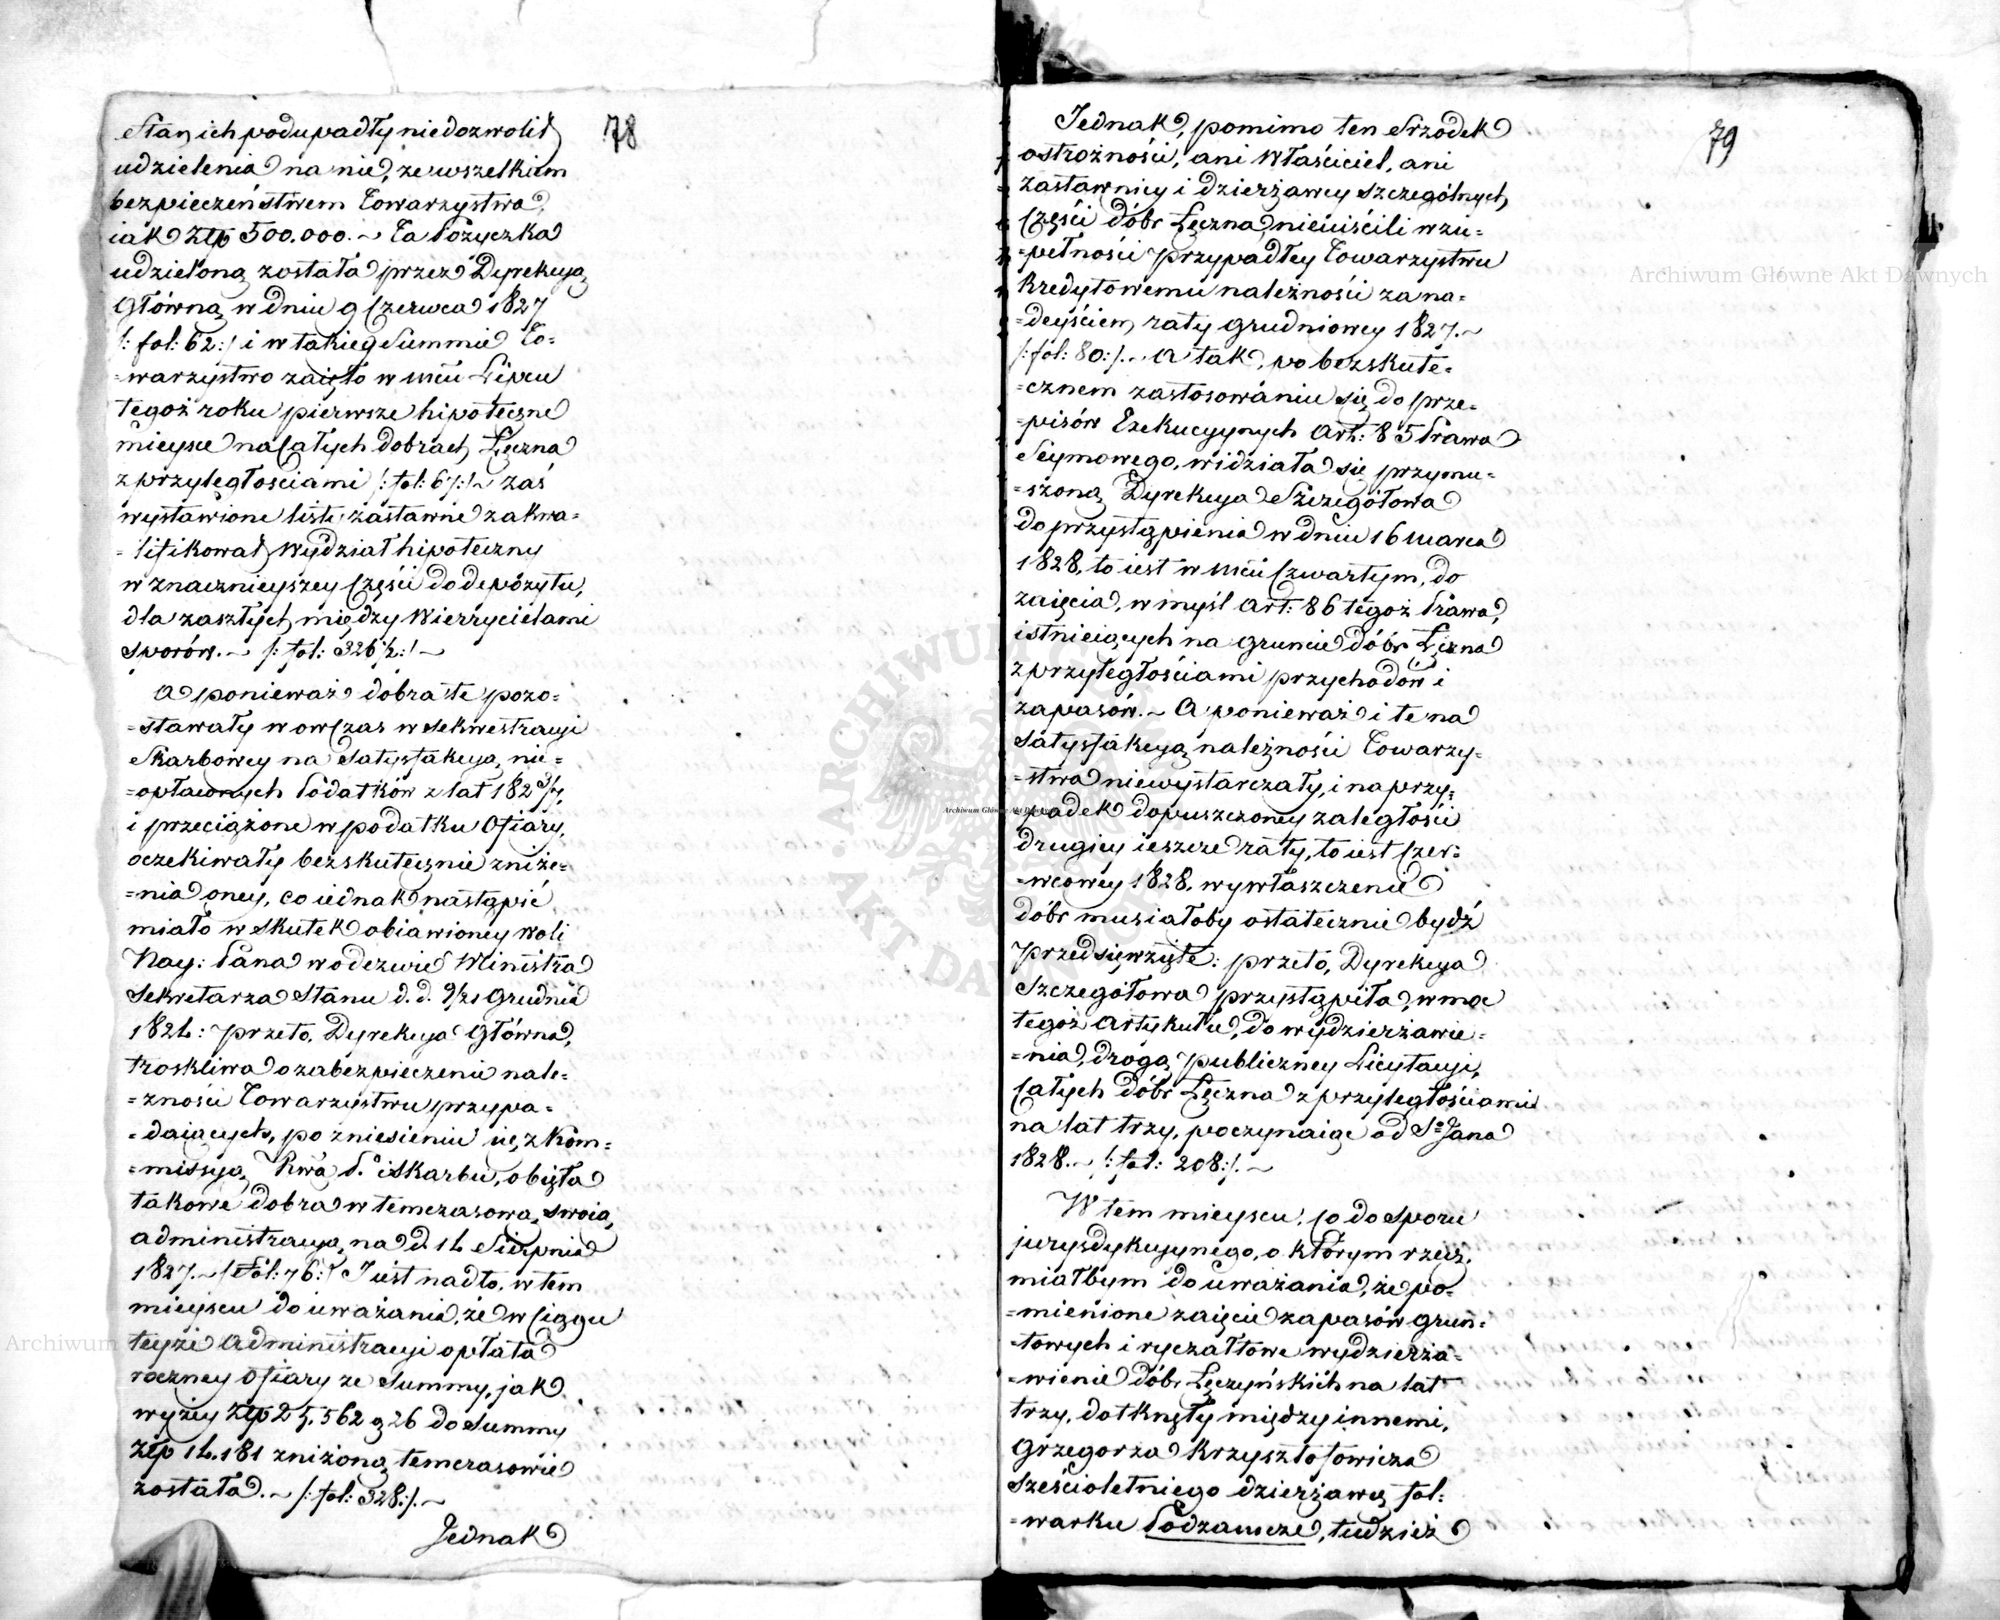 78
Stan ich podupadły niedozwolił
udzielenia na nie, ze wszelkiem
bezpieczeństwem Towarzystwa,
iak Złp 500.000.~ Ta Pożyczka
udzieloną została przez Dyrekcyą
Główną w dniu 9 Czerwca 1827
/: fol: 62:/ i w takiey Summie To=
=warzystwo zaięło w mcu Lipcu
tegoż roku pierwsze hipoteczne
mieysce na Całych dobrach Łęczna
z przyległościami /: fol: 67:/~ zaś
wystawione listy zastawne zakwa=
=lifikował Wydział hipoteczny
w znacznieyszey Części do depozytu,
dla zaszłych między Wierzycielami
sporów.~ /: fol: 326/2:/~
A ponieważ dobra te pozo=
=stawały wowczas w sekwestracyi
Skarbowey na Satysfakcyą nie=
=opłaconych Podatków z lat 182 3/7,
i przeciążone w podatku Ofiary,
oczekiwały bezskutecznie zniże=
=nia oney, co iednak nastąpić
miało w skutek obiawioney woli
Nay: Pana w odezwie Ministra
Sekretarza Stanu d. d. 9/21 Grudnia
1824: przeto, Dyrekcya Główna,
troskliwa o zabezpieczenie nale=
=żności Towarzystwu przypa=
=daiących, po zniesieniu się z Kom=
=missyą Rwą P. i Skarbu, obięła
takowe dobra w temczasową swoią
administracyą na d. 14 Sierpnia
1827.~ /: Fol: 76:/ Jest nadto, w tem
mieyscu do uważania, że w Ciągu
teyże Administracyi opłata
roczney Ofiary ze Summy, jak
wyżey Złp 25.562 g 26 do Summy
Złp 14.181 zniżoną temczasowie
została.~ /: fol: 328:/.~
Jednak
79
Jednak, pomimo ten Srzodek
ostrożności, ani Właściciel, ani
zastawnicy i dzierżawcy szczególnych
Części dóbr Łęczna, nieuiścili w zu=
=pełności przypadłey Towarzystwu
Kredytowemu należności za na=
=deyściem raty grudniowey 1827.~
/: fol: 80:/.~ A tak, po bezskute=
=cznem zastosowaniu się do prze=
=pisów Exekucyynych Art: 85 Prawa
Seymowego, widziała się przymu=
=szoną Dyrekcya Szczegółowa
do przystąpienia w dniu 16 marca
1828, to iest w mcu Czwartym, do
zaięcia, w myśl Art: 86 tegoż Prawa,
istnieiących na gruncie dóbr Łęczna
z przyległościami przychodów i
zapasów.~ A ponieważ i te na
satysfakcyą należności Towarzy=
=stwa niewystarczały, i na przy=
=padek dopuszczoney zaległości
drugiey ieszcze raty, to iest Czer=
=wcowéy 1828, wywłaszczenie
dóbr musiałoby ostatecznie bydź
przedsięwzięte: przeto, Dyrekcya
Szczegółowa przystąpiła, w moc
tegoż Artykułu, do wydzierżawie=
=nia, drogą publiczney Licytacyi,
Całych dóbr Łęczna z przyległościami
na lat trzy, poczynaiąc od So Jana
1828.~ /: fol: 208:/.~
W tem mieyscu, Co do Sporu
jurysdykcyynego, o którym rzecz,
miałbym do uważania, że po=
=mienione zaięcie zapasów grun=
=towych i ryczałtowe wydzierża=
=wienie dóbr Łęczyńskich na lat
trzy, dotknęły między innemi,
Grzegorza Krzysztofowicza
sześcioletniego dzierżawcę fol=
=warku Podzamcze, tudzież
Archiwum Główne Akt Dawnych
Archiwum Główne Akt Dawnych